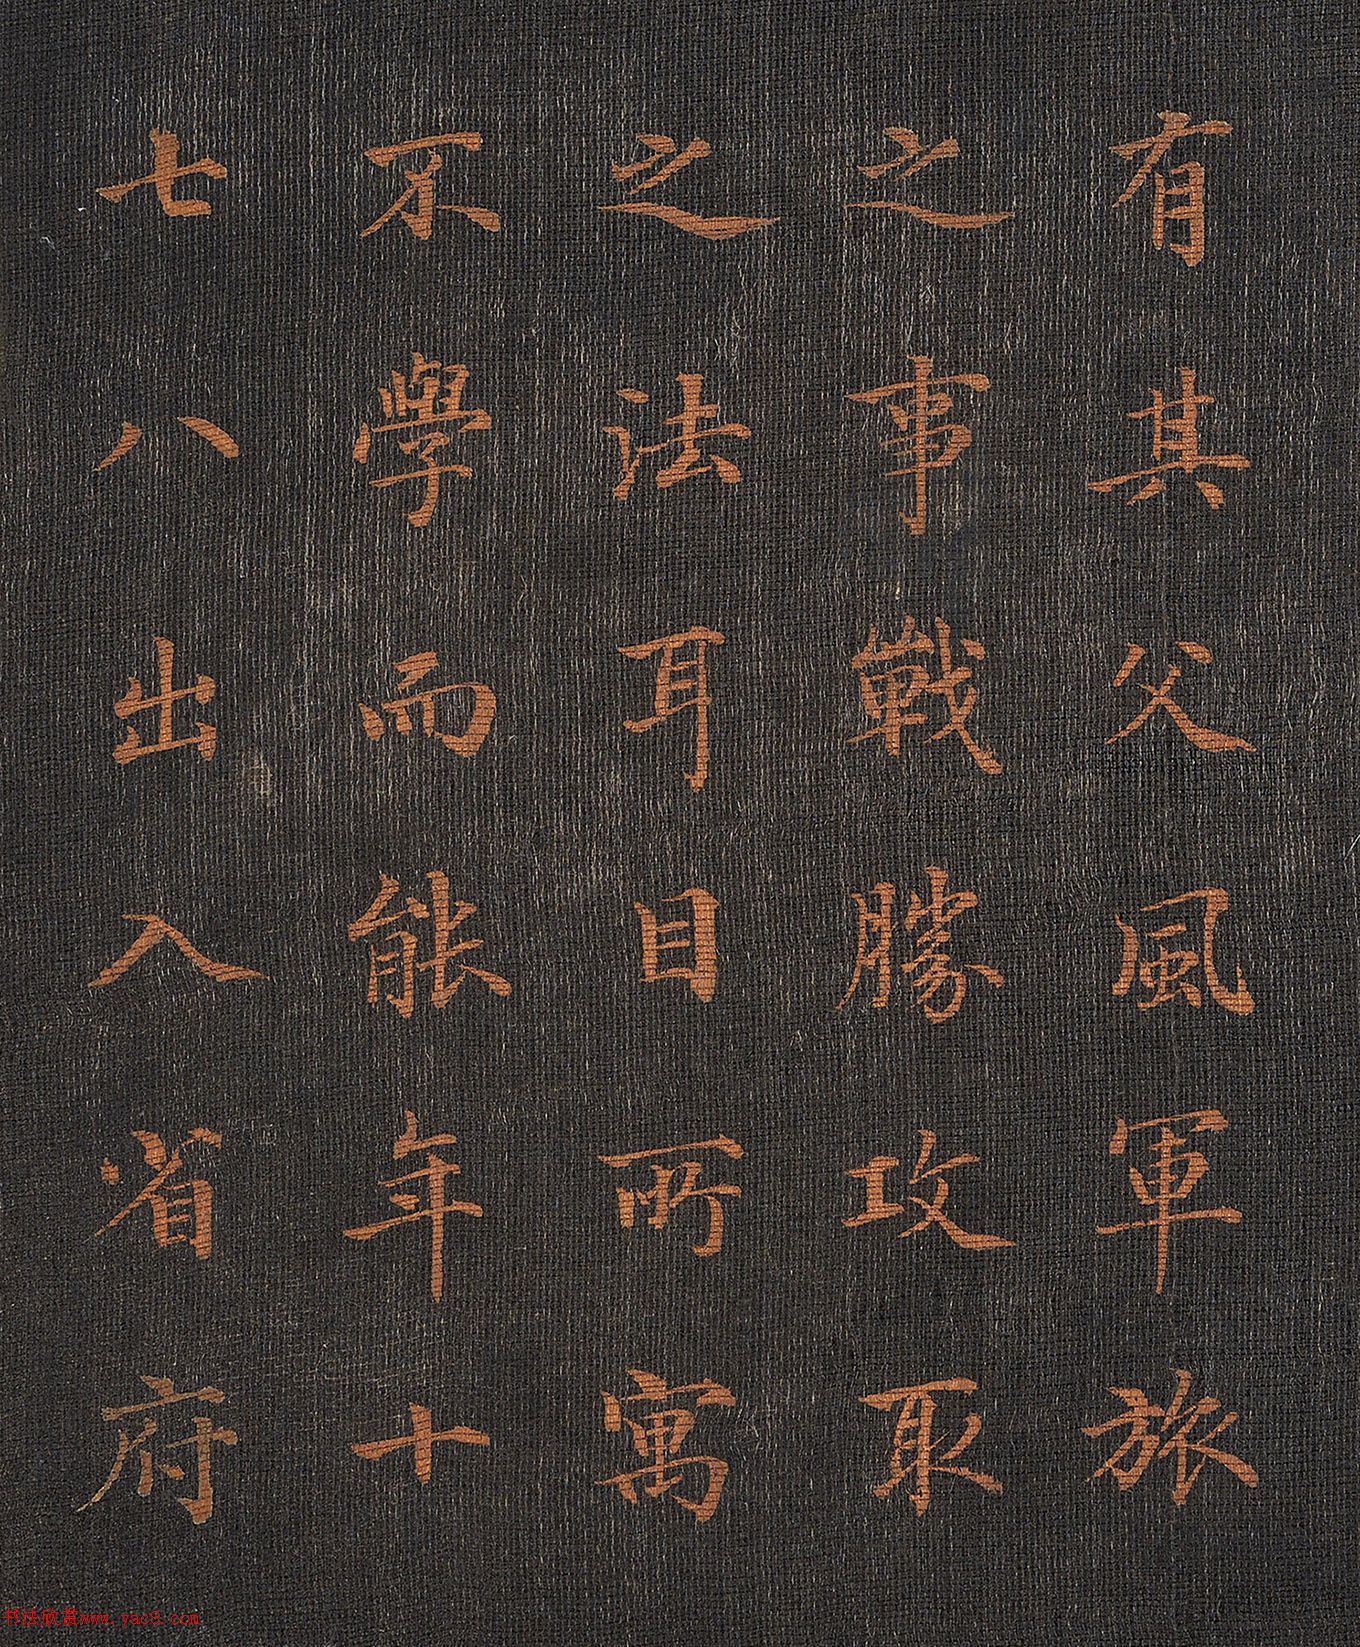 有其父風軍旅
之事戰勝攻取
之法耳目所寓
不學而能年十
七八出入省府
书法欣赏www.yac8.com